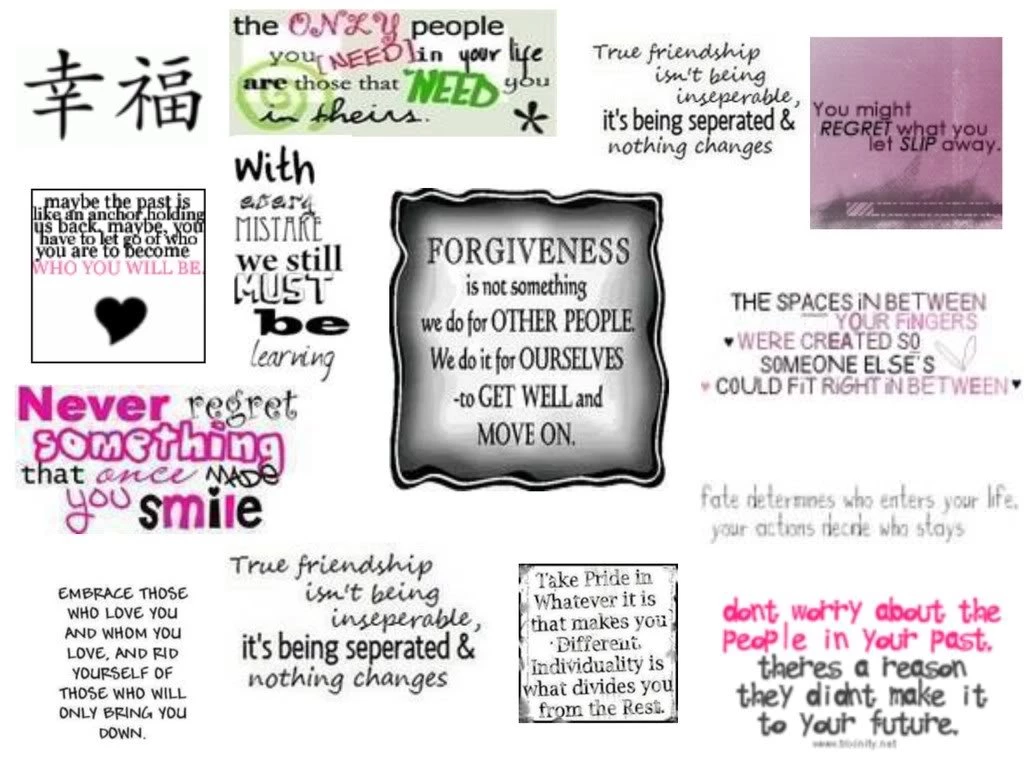 幸福
the ONLY people
you [NEED] in your life
are those that NEED you
in theirs. *
True friendship
isn't being
inseperable,
it's being seperated &
nothing changes
You might
REGRET what you
let SLIP away.
maybe the past is
like an anchor holding
us back. maybe, you
have to let go of who
you are to become
WHO YOU WILL BE.
With
every
MISTAKE
we still
MUST
be
learning
FORGIVENESS
is not something
we do for OTHER PEOPLE.
We do it for OURSELVES
-to GET WELL and
MOVE ON.
THE SPACES iN BETWEEN
YOUR FiNGERS
♥ WERE CREATED SO
SOMEONE ELSE'S
♥ COULD FiT RiGHT iN BETWEEN ♥
Never regret
something
that once MADE
you smile
fate determines who enters your life,
your actions decide who stays
EMBRACE THOSE
WHO LOVE YOU
AND WHOM YOU
LOVE, AND RID
YOURSELF OF
THOSE WHO WILL
ONLY BRING YOU
DOWN.
True friendship
isn't being
inseperable,
it's being seperated &
nothing changes
Take Pride in
Whatever it is
that makes you
Different.
Individuality is
what divides you
from the Rest.
dont worry about the
people in your past.
theres a reason
they didnt make it
to your future.